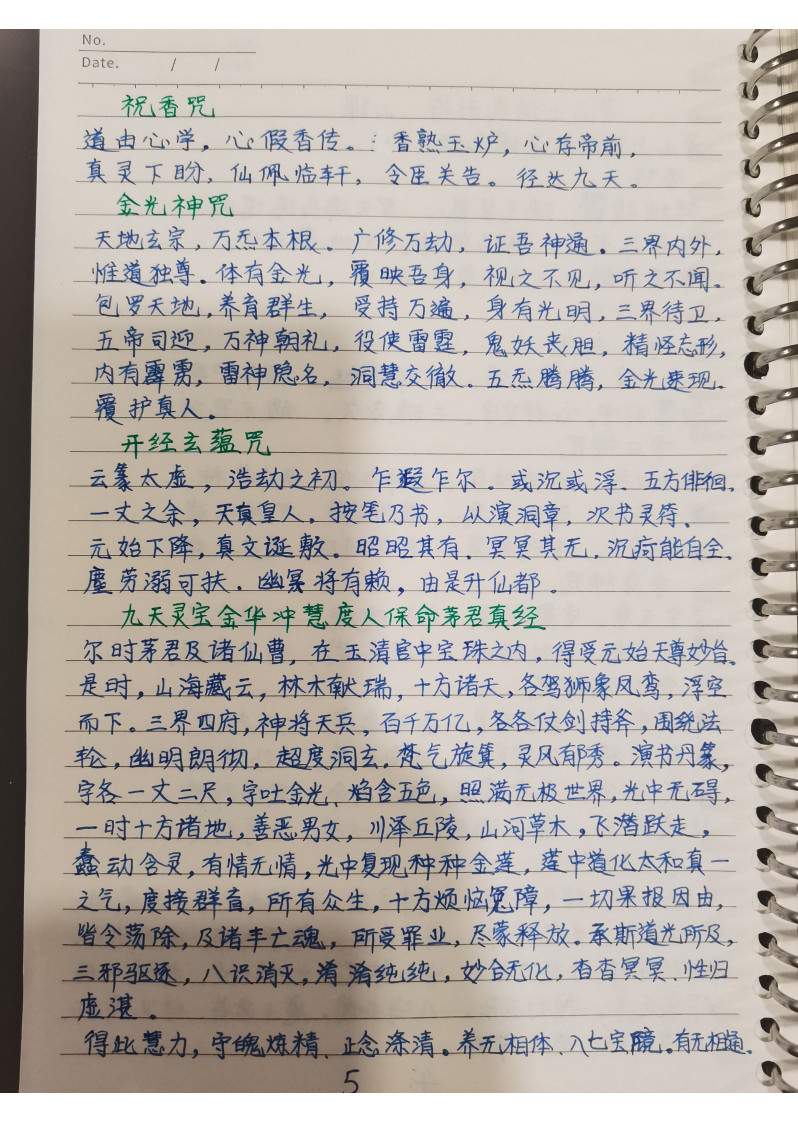 No.
Date. / /
祝香咒
道由心学，心假香传。香熟玉炉，心存帝前，
真灵下盼，仙佩临轩，令臣关告。径达九天。
金光神咒
天地玄宗，万炁本根、广修万劫，证吾神通。三界内外，
惟道独尊、体有金光，覆映吾身，视之不见，听之不闻。
包罗天地，养育群生，受持万遍，身有光明，三界待卫，
五帝司迎，万神朝礼，役使雷霆，鬼妖丧胆，精怪忘形，
内有霹雳，雷神隐名，洞慧交徹、五炁腾腾，金光速现、
覆护真人。
开经玄蕴咒
云篆太虚，浩劫之初。乍遐乍尔。或沉或浮、五方俳徊、
一丈之余，天真皇人，按笔乃书，从演洞章，次书灵符、
元始下降，真文诞敷。昭昭其有、冥冥其无，沉疴能自全、
塵劳溺可扶．幽冥将有赖，由是升仙都。
九天灵宝金华冲慧度人保命茅君真经
尔时茅君及诸仙曹，在玉清宫中宝珠之内，得受元始天尊妙旨、
是时，山海藏云，林木献瑞，十方诸天，各驾狮象凤鸾，浮空
而下。三界四府，神将天兵，百千万亿，各各仗剑持斧，围绕法
轮，幽明朗彻，超度洞玄．梵气旋箕，灵风郁秀。演书丹篆，
字各一丈二尺，字吐金光、焰含五色，照满无极世界，光中无碍，
一时十方诸地，善恶男女，川泽丘陵，山河草木，飞潜跃走，
蠢动含灵，有情无情，光中复现种种金莲，莲中道化太和真一
之气，度接群盲，所有众生，十方烦恼冤障，一切果报因由，
皆令荡除，及诸丰亡魂，所受罪业，尽蒙释放。承斯道光所及，
三邪驱逐，八识消灭，淆淆纯纯，妙合无化，杳杳冥冥、性归
虚湛。
得此慧力，守魄炼精、正念涤清。养无相体、入七宝境。有无相通、
5